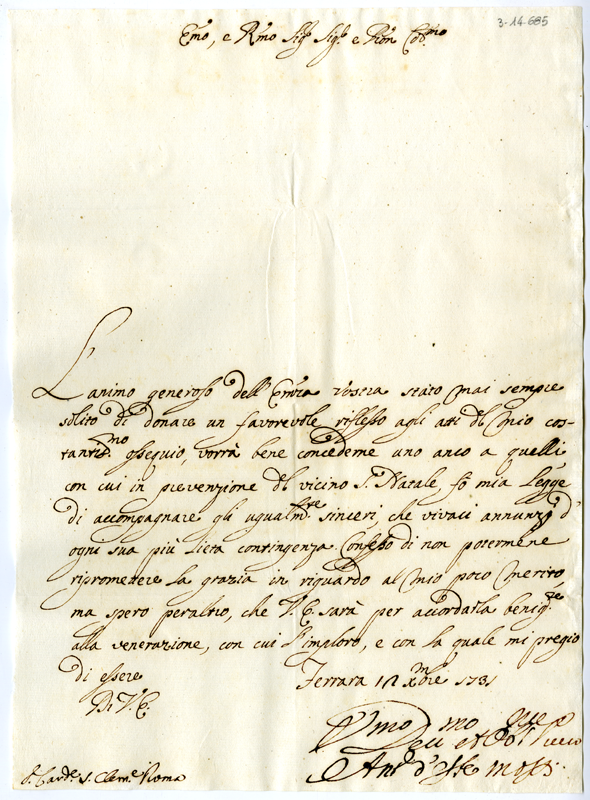 3-14-685
Emo, e Rmo Sigr Sigr e Pron Colmo
L'animo generoso dell'Emza Vostra stato mai sempre
solito di donare un favorevole riflesso agli atti del mio cos-
tantismo ossequio, vorrà bene concederne uno anco a quelli
con cui in prevenzione del vicino S. Natale fò mia Legge
di accompagnare gli ugualmte sinceri, che vivaci annunzj d'
ogni sua più lieta contingenza. Confesso di non potermene
ripromettere la grazia in riguardo al mio poco merito,
ma spero peraltro, che V. E. sarà per accordarla benigte
alla venerazione, con cui l'imploro, e con la quale mi pregio
di essere
Ferrara Xmbre 1731
Di V. E.
Sr Card. S. Cleme Roma